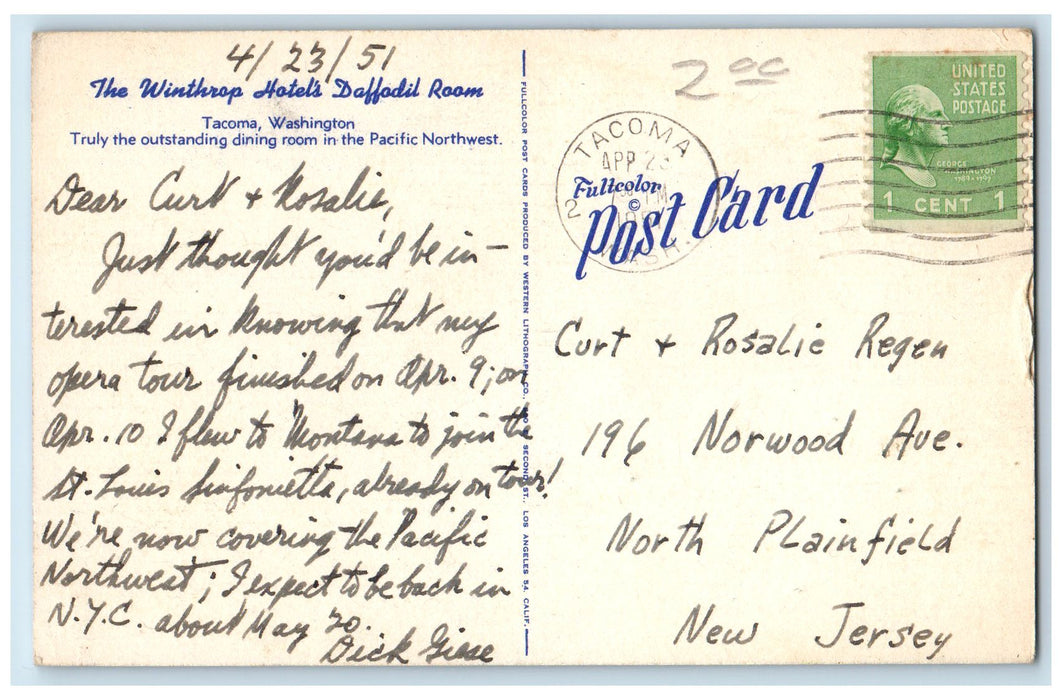 4/23/51
The Winthrop Hotel's Daffodil Room
Tacoma, Washington
Truly the outstanding dining room in the Pacific Northwest.
Dear Curt + Rosalie,
Just thought you'd be in-
terested in knowing that my
opera tour finished on Apr. 9; on
Apr. 10 I flew to Montana to join the
St. Louis Sinfonietta, already on tour!
We're now covering the Pacific
Northwest; I expect to be back in
N.Y.C. about May 20.
Dick Giese
FULLCOLOR POST CARDS PRODUCED BY WESTERN LITHOGRAPH CO., SECOND ST., LOS ANGELES 54, CALIF.
2 00
TACOMA
APR 23
2
PM
WASH.
Fullcolor
©
Post Card
UNITED
STATES
POSTAGE
GEORGE
WASHINGTON
1789-1797
1 CENT 1
Curt + Rosalie Regen
196 Norwood Ave.
North Plainfield
New Jersey